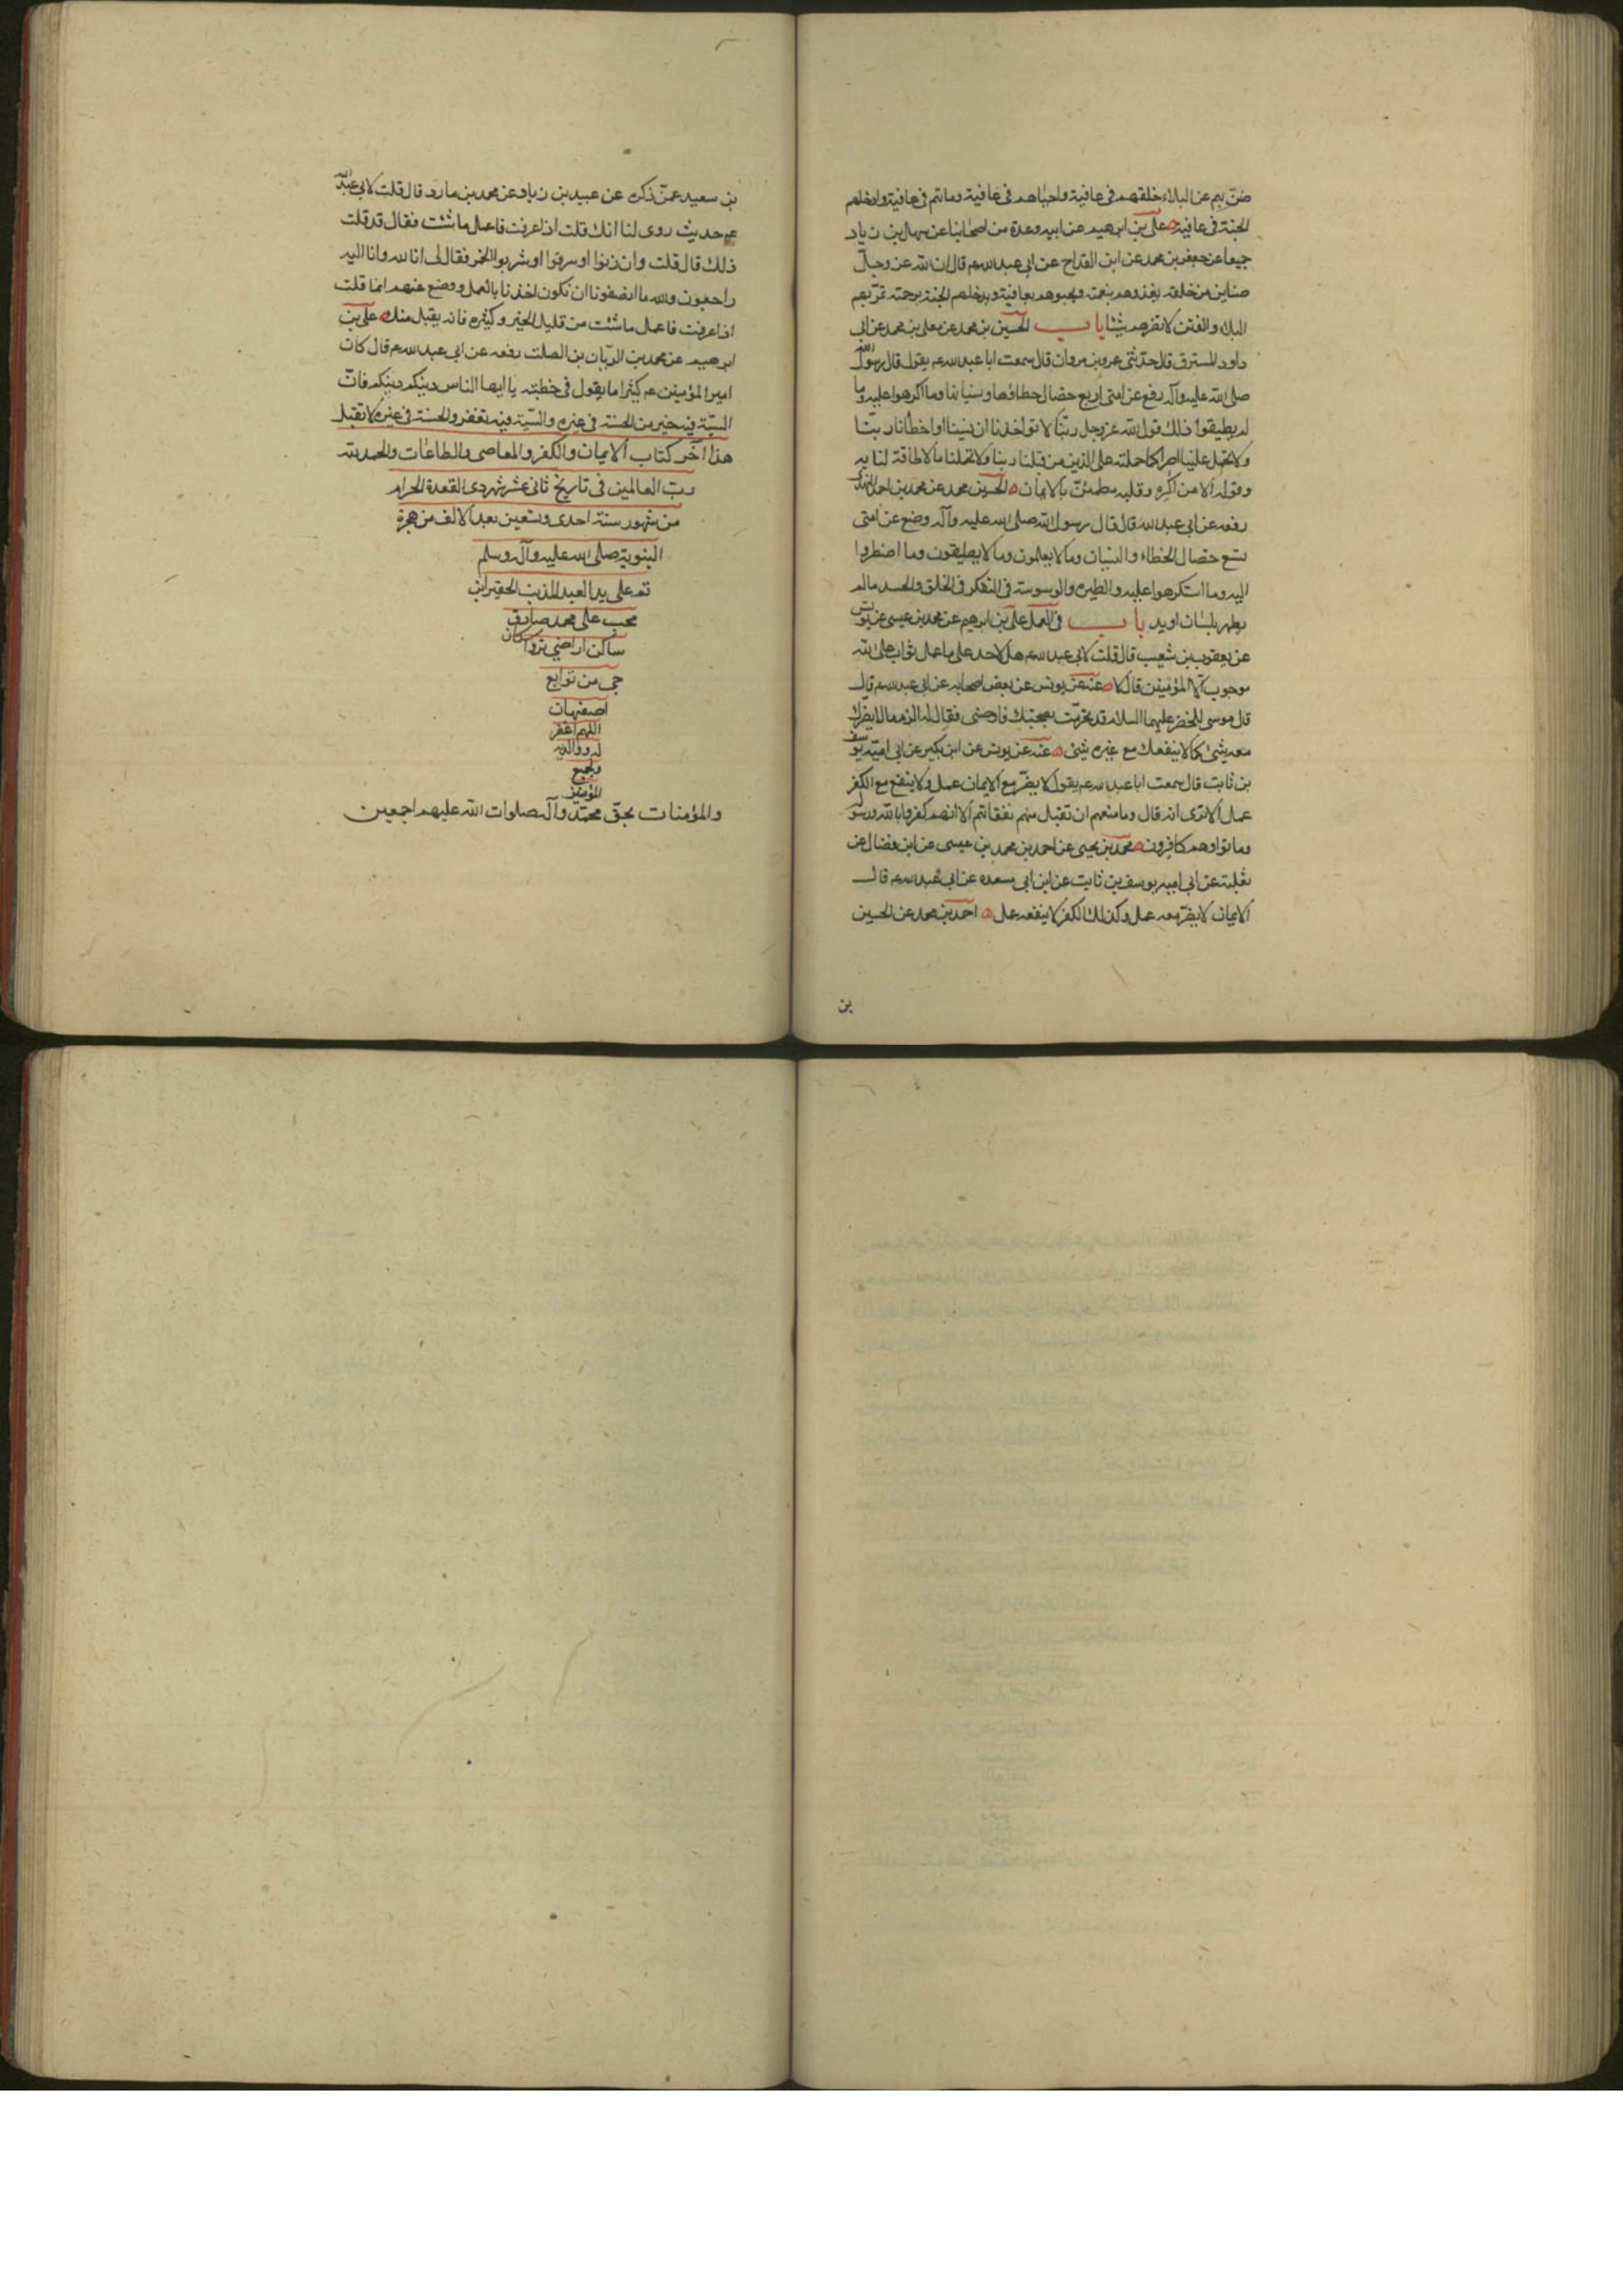 ضنّ بهم عن البلاء خلقهم فى عافية واحياهم فى عافية وماتهم فى عافية وادخلهم
الجنة فى عافية على بن ابرهيم عن ابيه وعدة من اصحابنا عن سهل بن زياد
جميعا عن جعفر بن محمد عن ابن القداح عن ابى عبد الله ع قال ان لله عز وجلّ
ضناين من خلقه يغذوهم بنعمته ويحبوهم بعافيته ويدخلهم الجنة برحمته تمرّ بهم
البلاء والفتن لا تضرهم شيئا باب الحسين بن محمد عن معلى بن محمد عن ابى
داود المسترق قال حدّثنى عمرو بن مروان قال سمعت ابا عبد الله ع يقول قال رسول الله
صلى الله عليه وآله رفع عن امتى اربع خصال خطاؤها ونسيانها وما اكرهوا عليه وما
لم يطيقوا ذلك قول الله عز وجل ربّنا لا تؤاخذنا ان نسينا او اخطأنا ربّنا
ولا تحمل علينا اصرا كما حملته على الذين من قبلنا ربنا ولا تحملنا ما لا طاقة لنا به
وقوله الا من اكره وقلبه مطمئنّ بالايمان الحسين بن محمد عن محمد بن احمد النهدى
رفعه عن ابى عبد الله قال قال رسول الله صلى الله عليه وآله وضع عن امتى
تسع خصال الخطاء والنسيان وما لا يعلمون وما لا يطيقون وما اضطروا
اليه وما استكرهوا عليه والطيره والوسوسة فى التفكر فى الخلق والحسد ما لم
يظهر بلسان او يد باب فى العمل على بن ابرهيم عن محمد بن عيسى عن يونس
عن يعقوب بن شعيب قال قلت لابى عبد الله ع هل لاحد على ما عمل ثواب على الله
موجوب الا المؤمنين قال لا عنه عن يونس عن بعض اصحابه عن ابى عبد الله ع قال
قال موسى للخضر عليهما السلام قد تحرّمت بصحبتك فاوصنى فقال له الزم ما لا يضرك
معه شئ كما لا ينفعك مع غيره شئ عنه عن يونس عن ابن بكير عن ابى اميّه يوسف
بن ثابت قال سمعت ابا عبد الله ع يقول لا يضرّ مع الايمان عمل ولا ينفع مع الكفر
عمل الا ترى انه قال وما منعهم ان تقبل منهم نفقاتهم الا انهم كفروا بالله ورسوله
وماتوا وهم كافرون محمد بن يحيى عن احمد بن محمد بن عيسى عن ابن فضال عن
ثعلبة عن ابى اميه يوسف بن ثابت عن ابن ابى سعده عن ابى عبد الله ع قال
الايمان لا يضرّ معه عمل وكذلك الكفر لا ينفعه عمل احمد بن محمد عن الحسين
بن
بن سعيد عمّن ذكره عن عبيد بن زياد عن محمد بن مارد قال قلت لابى عبد الله
ع حديث روى لنا انك قلت اذا عرفت فاعمل ما شئت فقال قد قلت
ذلك قال قلت وان زنوا او سرقوا او شربوا الخمر فقال لى انا لله وانا اليه
راجعون والله ما انصفونا ان نكون اخذنا بالعمل ووضع عنهم انما قلت
اذا عرفت فاعمل ما شئت من قليل الخير وكثيره فانه يقبل منك على بن
ابرهيم عن محمد بن الريّان بن الصلت رفعه عن ابى عبد الله ع قال كان
امير المؤمنين ع كثيرا ما يقول فى خطبته يا ايها الناس دينكم دينكم فانّ
السيّئة فيه خير من الحسنة فى غيره والسيّئة فيه تغفر والحسنة فى غيره لا تقبل
هذا آخر كتاب الايمان والكفر والمعاصى والطاعات والحمد لله
ربّ العالمين فى تاريخ ثانى عشر شهر ذى القعدة الحرام
من شهور سنة احدى وتسعين بعد الالف من هجرة
النبوية صلى الله عليه وآله وسلم
تم على يد العبد المذنب الحقير ابن
محب على محمد صادق
ساكن اراضى
جى من توابع
اصفهان
اللهم اغفر
له ووالديه
ولجميع
المؤمنين
والمؤمنات بحقّ محمّد وآله صلوات الله عليهم اجمعين